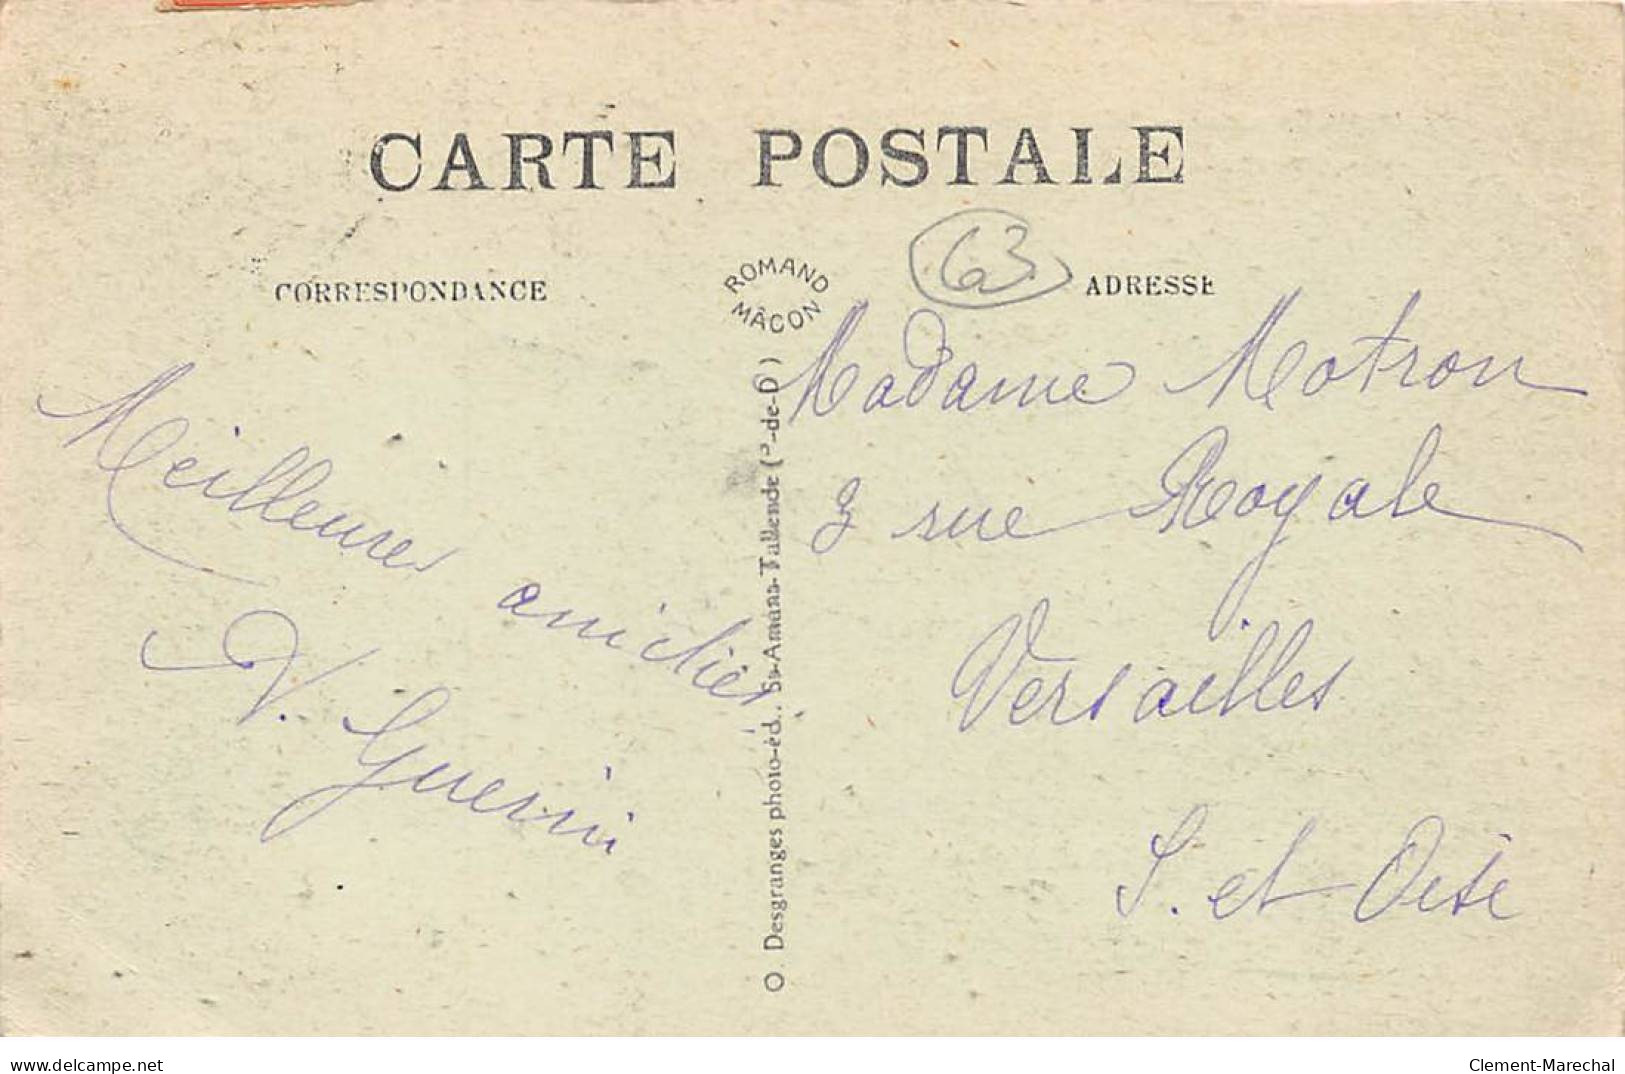 CARTE POSTALE
CORRESPONDANCE
ROMAND
MÂCON
63
ADRESSE
Meilleures amitiés
V. Guerin
O. Desgranges photo-éd., St-Amans-Tallende (P-de-D)
Madame Motron
3 rue Royale
Versailles
S. et Oise
delcampe.net
Clement-Marechal